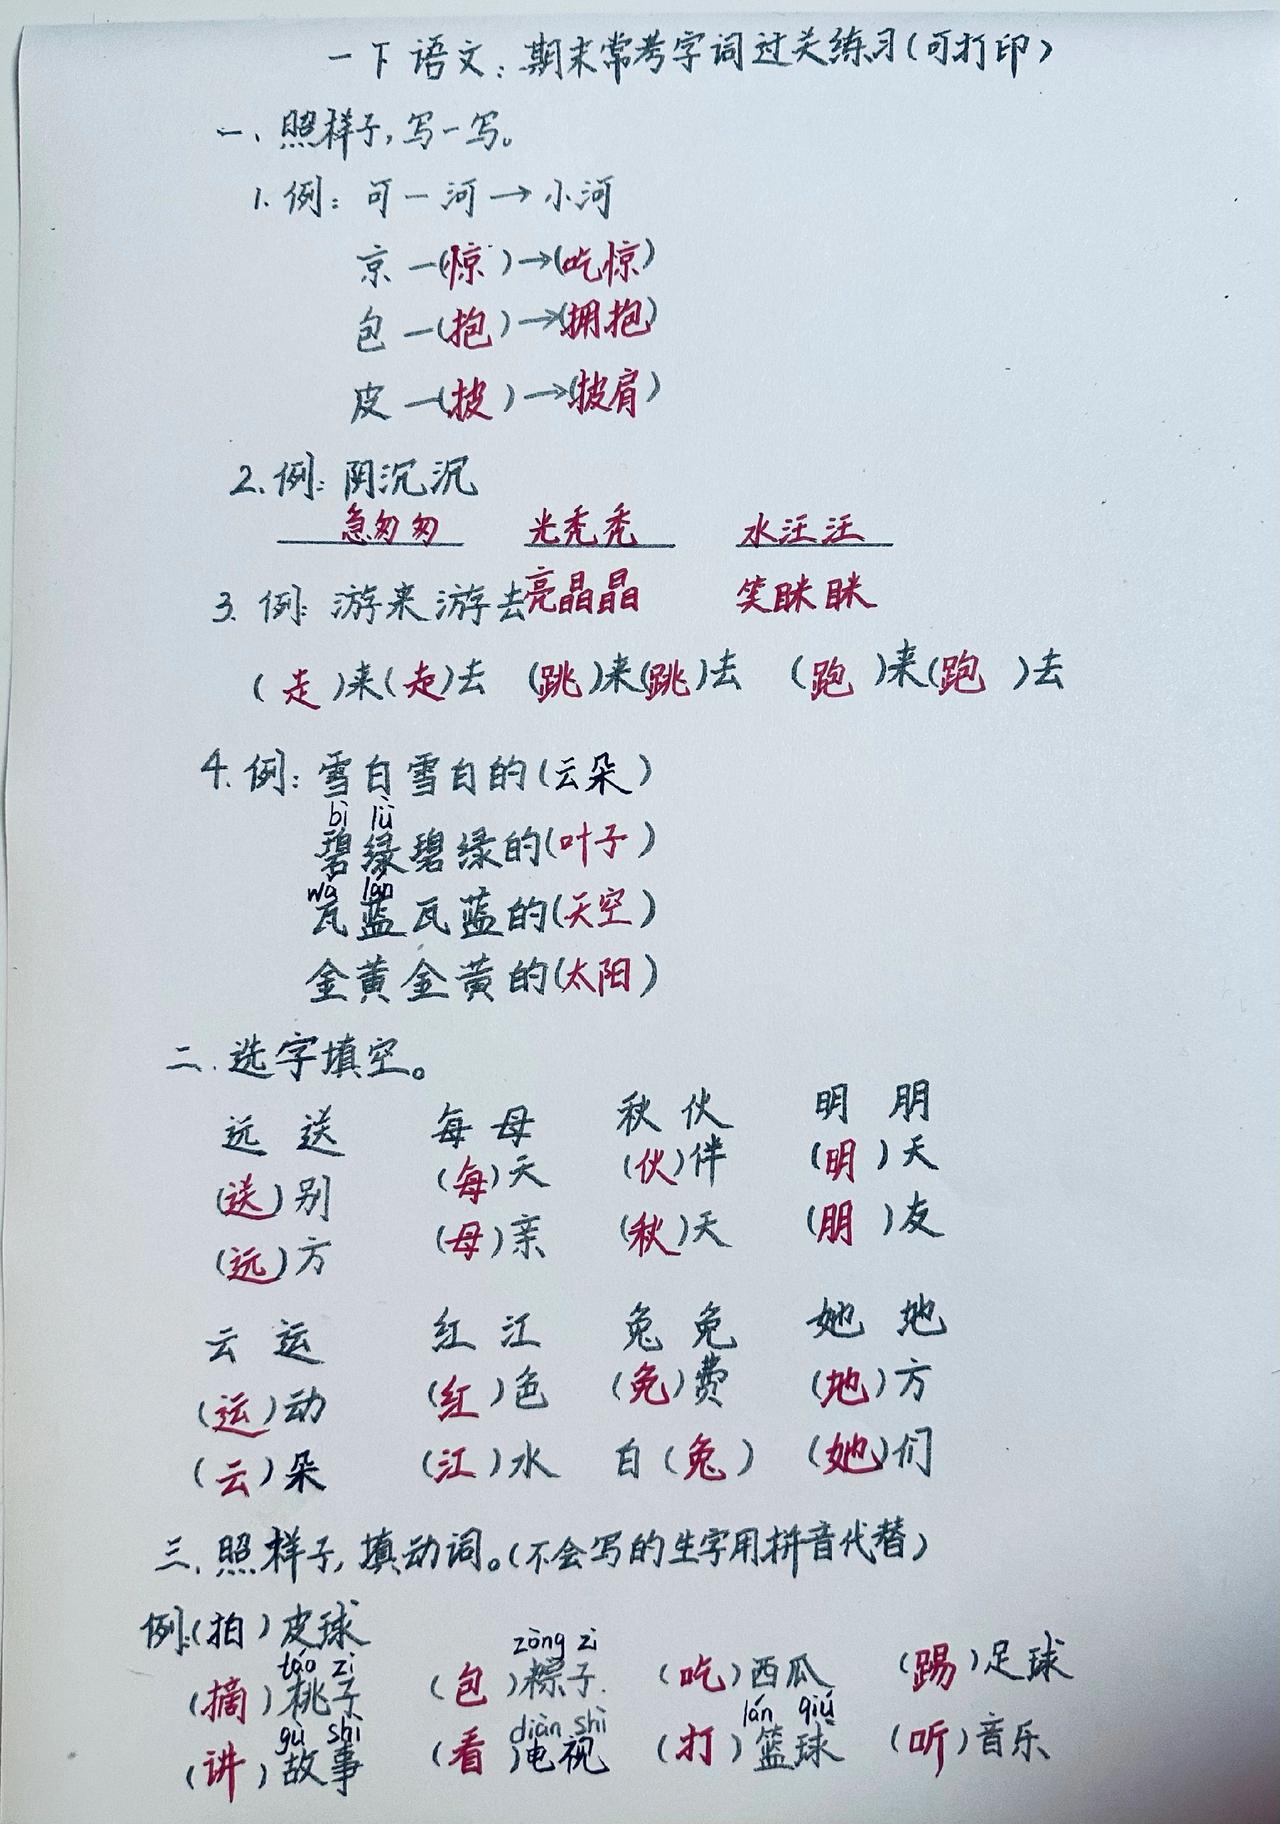 一下语文：期末常考字词过关练习(可打印)
一、照样子，写一写。
1. 例：可一河→小河
京一(惊)→(吃惊)
包一(抱)→(拥抱)
皮一(披)→(披肩)
2. 例：阴沉沉
急匆匆 光秃秃 水汪汪
亮晶晶 笑眯眯
3. 例：游来游去
(走)来(走)去 (跳)来(跳)去 (跑)来(跑)去
4. 例：雪白雪白的(云朵)
bì lǜ
碧绿碧绿的(叶子)
wǎ lán
瓦蓝瓦蓝的(天空)
金黄金黄的(太阳)
二.选字填空。
远 送 每 母 秋 伙 明 朋
(送)别 (每)天 (伙)伴 (明)天
(远)方 (母)亲 (秋)天 (朋)友
云 运 红 江 兔 免 她 地
(运)动 (红)色 (免)费 (地)方
(云)朵 (江)水 白(兔) (她)们
三.照样子，填动词。(不会写的生字用拼音代替)
例:(拍)皮球
táo zi zòng zi
(摘)桃子 (包)粽子. (吃)西瓜 (踢)足球
gù shì diàn shì lán qiú
(讲)故事 (看)电视 (打)篮球 (听)音乐